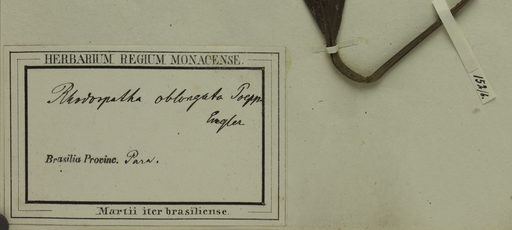 HERBARIUM REGIUM MONACENSE.
Rhodospatha oblongata Poepp.
Engler
Brasilia Provinc. Para.
Martii iter brasiliense.